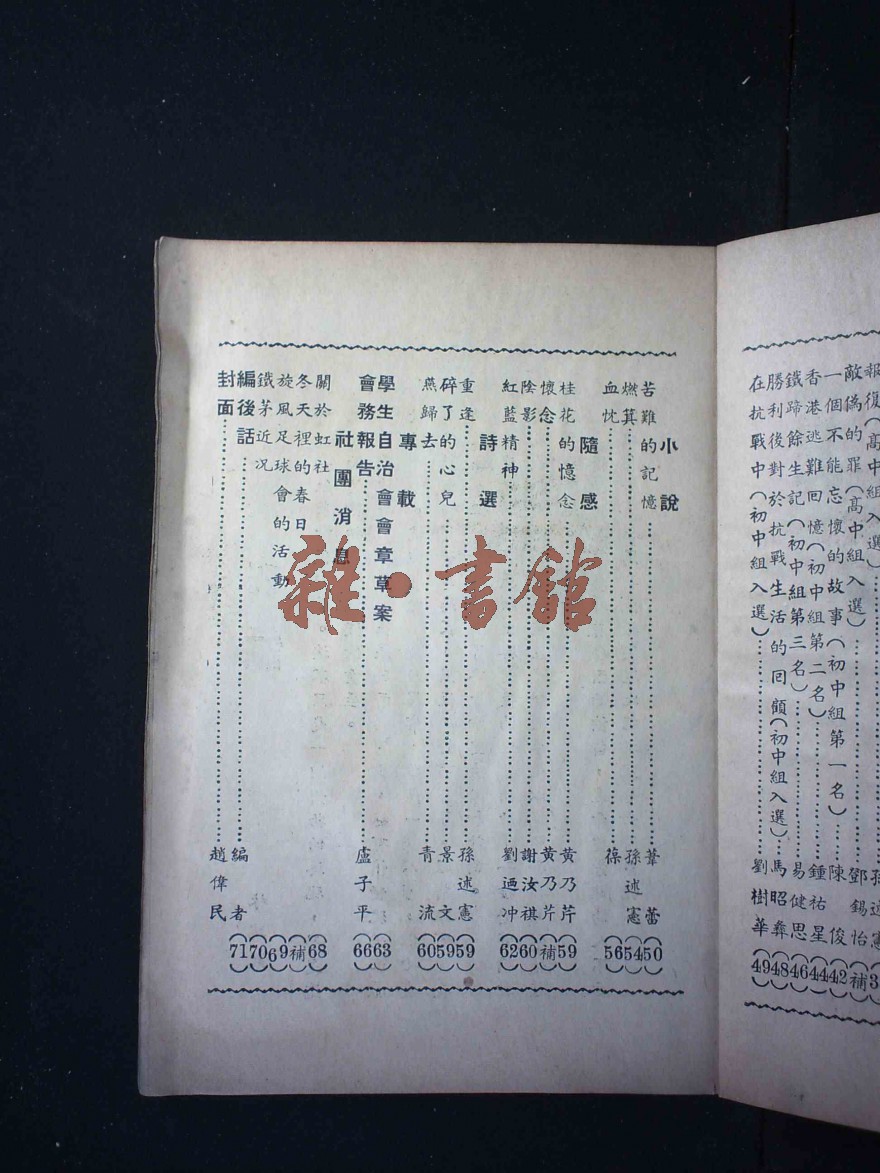 報復(高中組入選)……孫述憲(3
敵偽的罪(高中組入選)……鄧錫怡(補)
一個不能忘懷的故事(初中組第一名)……陳俊(42)
香港逃難回憶(初中組第二名)……鍾祐星(44)
鐵蹄餘生記(初中組第三名)……易健思(46)
勝利後對於抗戰生活的回顧(初中組入選)……馬昭彝(48)
在抗戰中(初中組入選)……劉樹華(49)
小說
苦難的記憶……葦蕾(50)
燃箕……孫述憲(54)
血忱……葆(56)
隨感
桂花的憶念……黄乃芹(59)
懷念……黄乃芹(補)
陰影……謝汝祺(60)
紅藍精神……劉迺冲(62)
詩選
重逢……孫述憲(59)
碎了的心兒……景文(59)
燕歸去……青流(60)
專載
學生自治會會章草案(63)
會務報告……盧子平(66)
社團消息
關於虹社(68)
冬天裡的春日(補)
旋風足球會的活動(69)
鐵茅近况(70)
編後話……編者(71)
封面……趙偉民
雜·書館